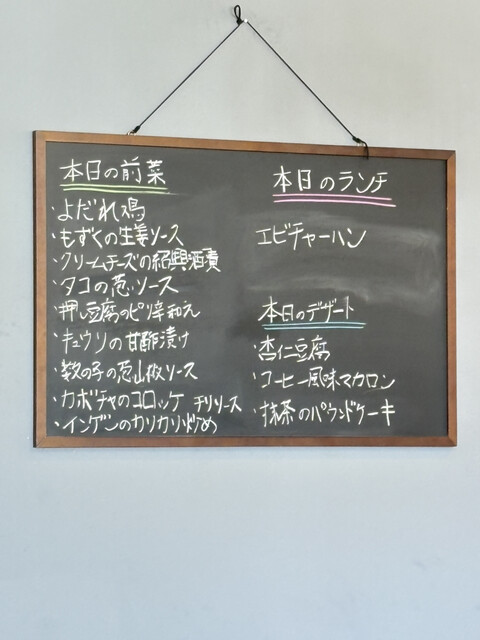 本日の前菜
・よだれ鶏
・もずくの生姜ソース
・クリームチーズの紹興酒漬
・タコの葱ソース
・押し豆腐のピリ辛和え
・キュウリの甘酢漬け
・数の子の葱山椒ソース
・カボチャのコロッケ チリソース
・インゲンのカリカリ炒め
本日のランチ
エビチャーハン
本日のデザート
・杏仁豆腐
・コーヒー風味マカロン
・抹茶のパウンドケーキ